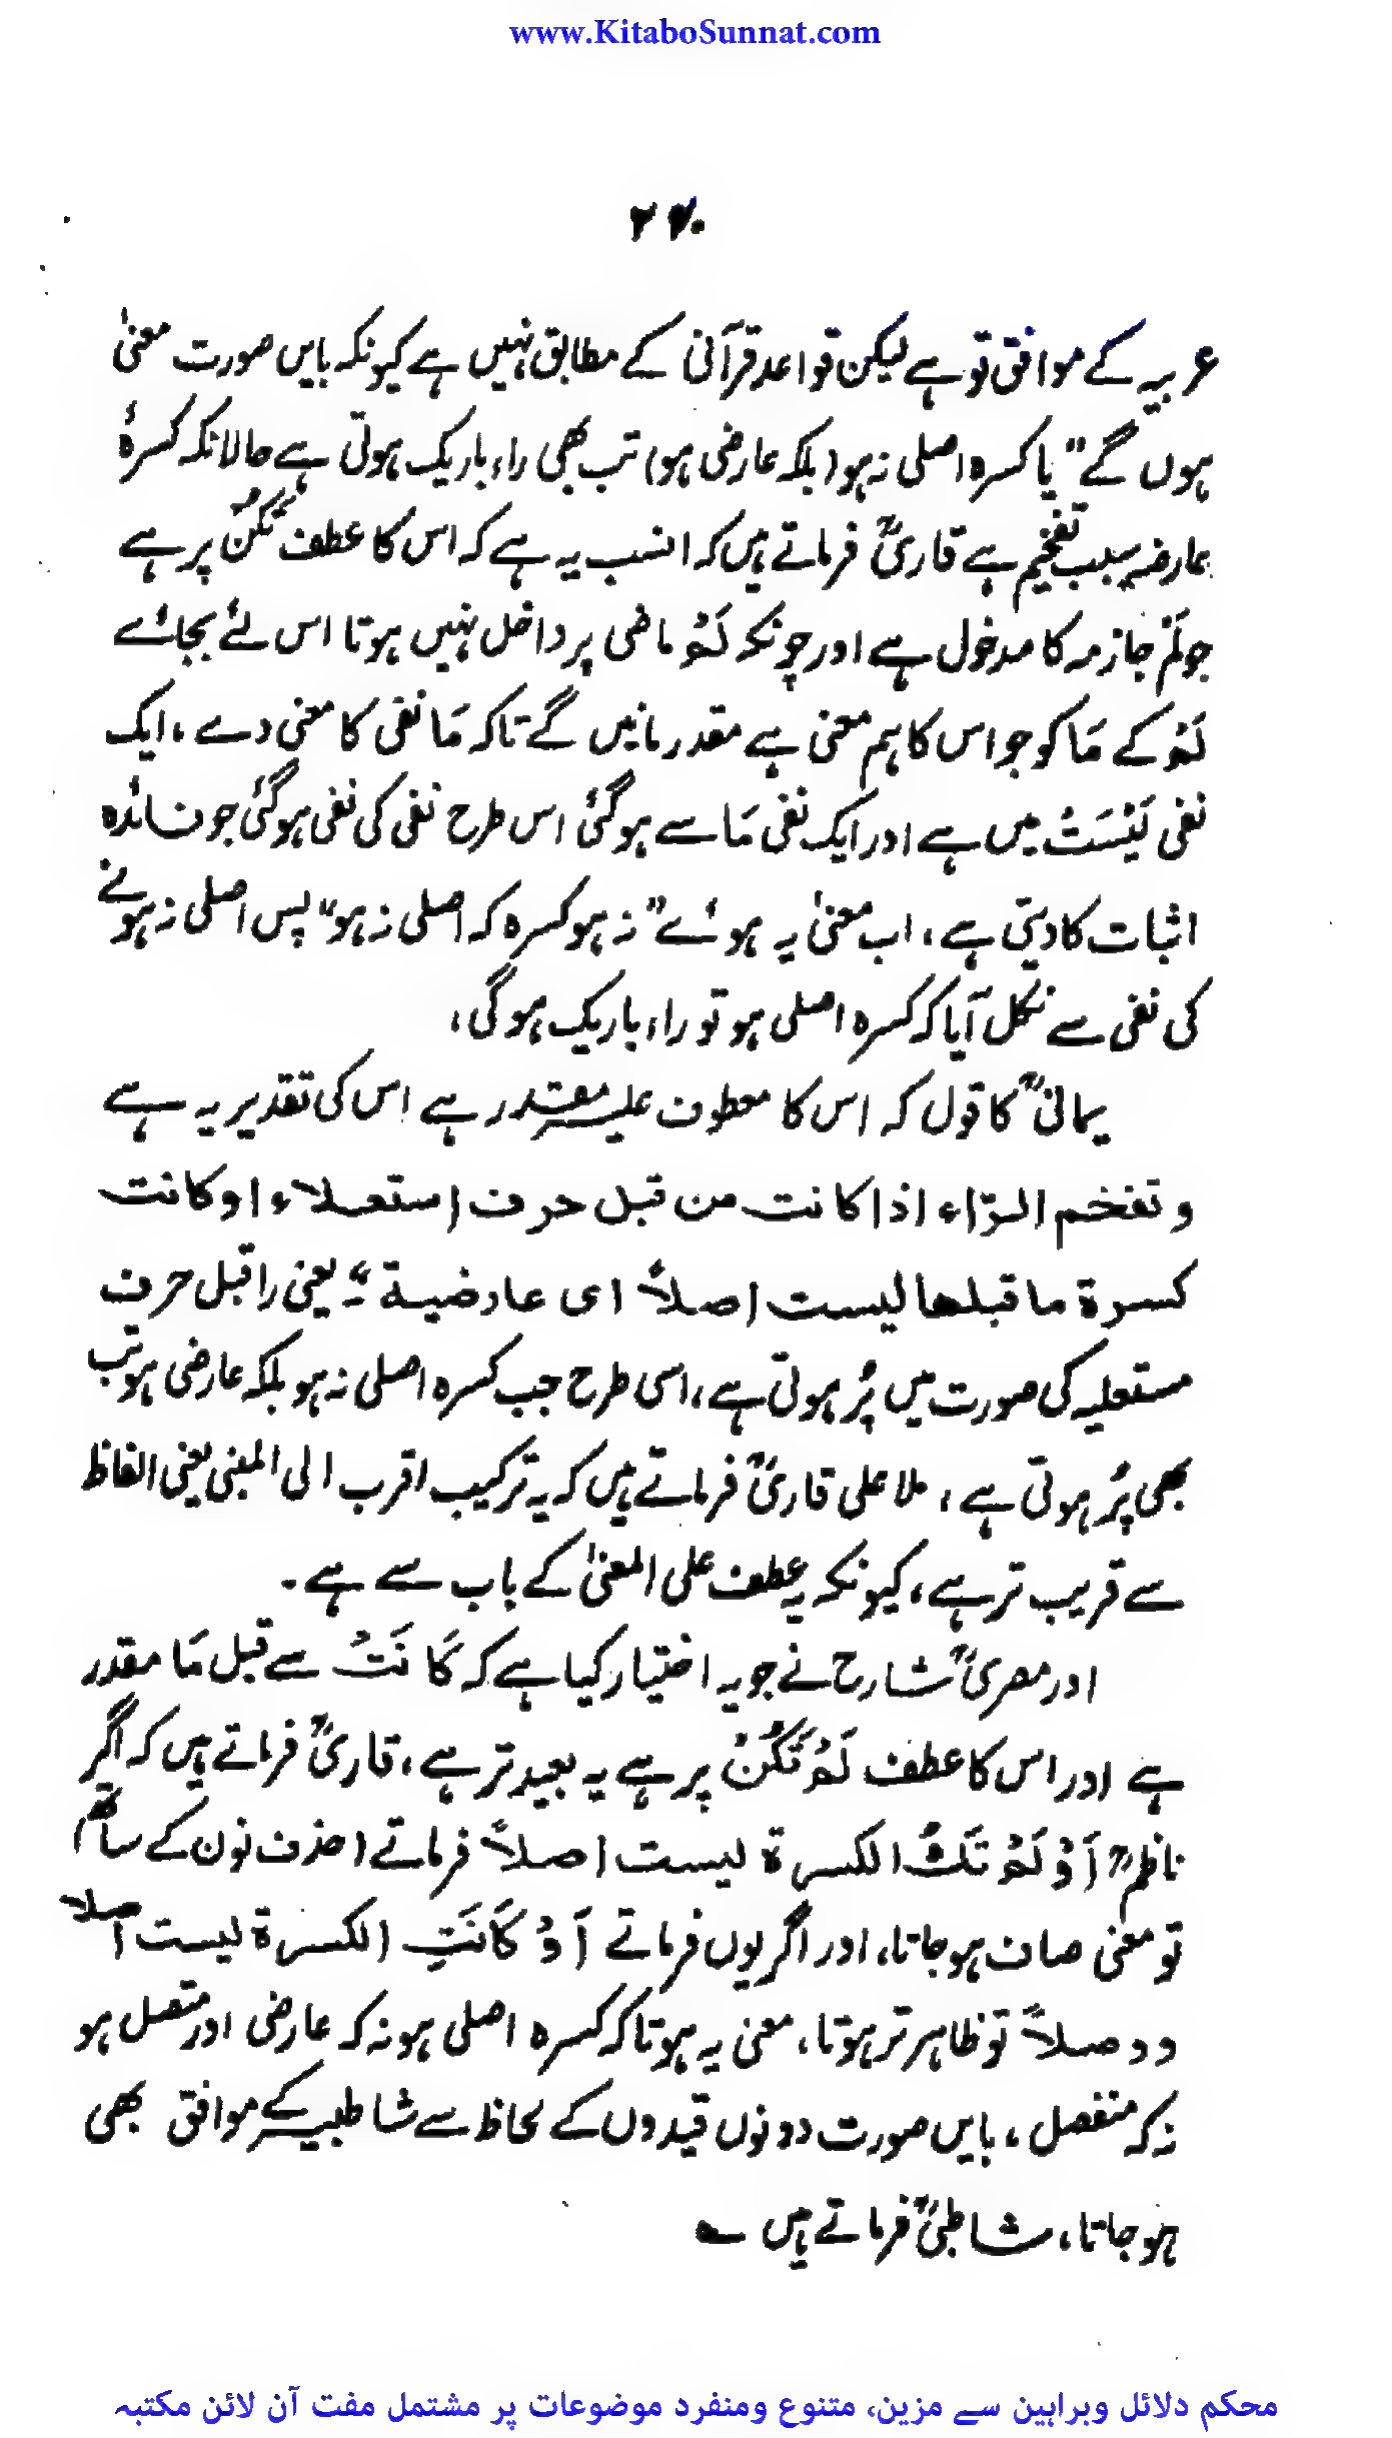 www.KitaboSunnat.com
۲۷۰
عربیہ کے موافق تو ہے لیکن قواعد قرآنی کے مطابق نہیں ہے کیونکہ بایں صورت معنیٰ
ہوں گے " یا کسرہ اصلی نہ ہو (بلکہ عارضی ہو) تب بھی راء باریک ہوتی ہے حالانکہ کسرۂ
عارضہ سبب تفخیم ہے قاریؒ فرماتے ہیں کہ انسب یہ ہے کہ اس کا عطف تَکُنْ پر ہے
جو لَمْ جازمہ کا مدخول ہے اور چونکہ لَمْ ماضی پر داخل نہیں ہوتا اس لئے بجائے
لَمْ کے مَا کو جو اس کا ہم معنی ہے مقدر مانیں گے تاکہ مَا نفی کا معنی دے ، ایک
نفی لَیْسَتْ میں ہے اور ایک نفی مَا سے ہوگئی اس طرح نفی کی نفی ہوگئی جو فائدہ
اثبات کا دیتی ہے ، اب معنیٰ یہ ہوئے " نہ ہو کسرہ کہ اصلی نہ ہو " پس اصلی نہ ہونے
کی نفی سے نکل آیا کہ کسرہ اصلی ہو تو راء باریک ہوگی ،
یمانیؒ کا قول کہ اس کا معطوف علیہ مقدر ہے اس کی تقدیر یہ ہے
و تفخم الرّاء اذا کانت من قبل حرف استعلاء او کانت
کسرة ما قبلھا لیست اصلاً ای عارضیة " یعنی را قبل حرف
مستعلیہ کی صورت میں پُر ہوتی ہے ، اسی طرح جب کسرہ اصلی نہ ہو بلکہ عارضی ہو تب
بھی پُر ہوتی ہے ، ملا علی قاریؒ فرماتے ہیں کہ یہ ترکیب اقرب الی المبنی یعنی الفاظ
سے قریب تر ہے ، کیونکہ یہ عطف علی المعنیٰ کے باب سے ہے ۔
اور مصریؒ شارح نے جو یہ اختیار کیا ہے کہ کَانَتْ سے قبل مَا مقدر
ہے اور اس کا عطف لَمْ تَکُنْ پر ہے یہ بعید تر ہے ، قاریؒ فرماتے ہیں کہ اگر
ناظمؒ اَوْ لَمْ تَکُ الکسرة لیست اصلاً فرماتے (حذف نون کے ساتھ)
تو معنی صاف ہوجاتا ، اور اگر یوں فرماتے اَوْ کَانَتِ الکسرة لیست اصلا
ووصلاً تو ظاہر تر ہوتا ، معنی یہ ہوتا کہ کسرہ اصلی ہو نہ کہ عارضی اور متصل ہو
نہ کہ منفصل ، بایں صورت دونوں قیدوں کے لحاظ سے شاطبیہ کے موافق بھی
ہو جاتا ، شاطبیؒ فرماتے ہیں ؎
محکم دلائل وبراہین سے مزین، متنوع ومنفرد موضوعات پر مشتمل مفت آن لائن مکتبہ